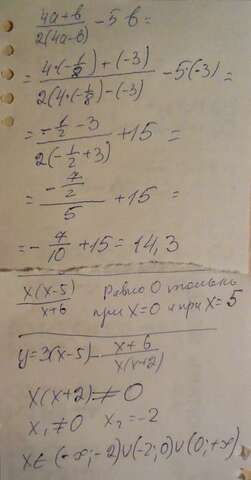 (4a+b)/(2(4a-b)) - 5·b =
= (4·(-1/8)+(-3))/(2(4·(-1/8)-(-3))) - 5·(-3) =
= (-1/2-3)/(2(-1/2+3)) + 15 =
= (-7/2)/5 + 15 =
= -7/10 + 15 = 14,3
x(x-5)/(x+6) Равно 0 только
при x=0 и при x=5
y=3(x-5) - (x+6)/(x(x+2))
x(x+2) ≠ 0
x₁ ≠ 0 x₂ = -2
x∈(-∞;-2)∪(-2;0)∪(0;+∞)